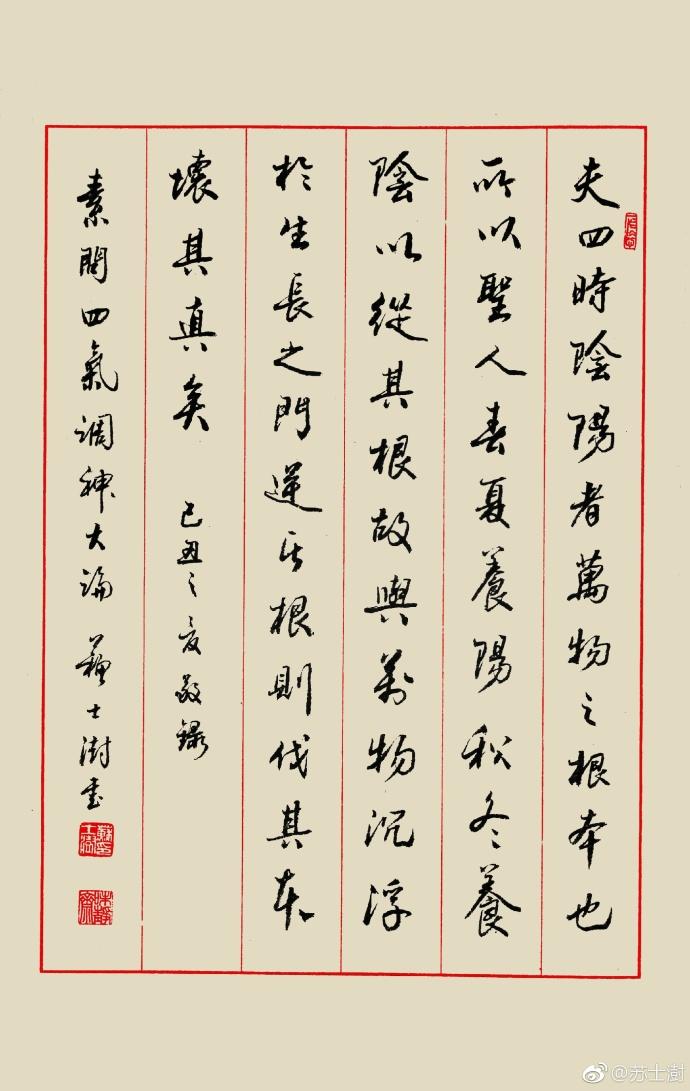 夫四時陰陽者萬物之根本也
所以聖人春夏養陽秋冬養
陰以從其根故與萬物沉浮
於生長之門逆其根則伐其本
壞其真矣 己丑之夏敬錄
素問四氣調神大論 蘇士澍書
@苏士澍